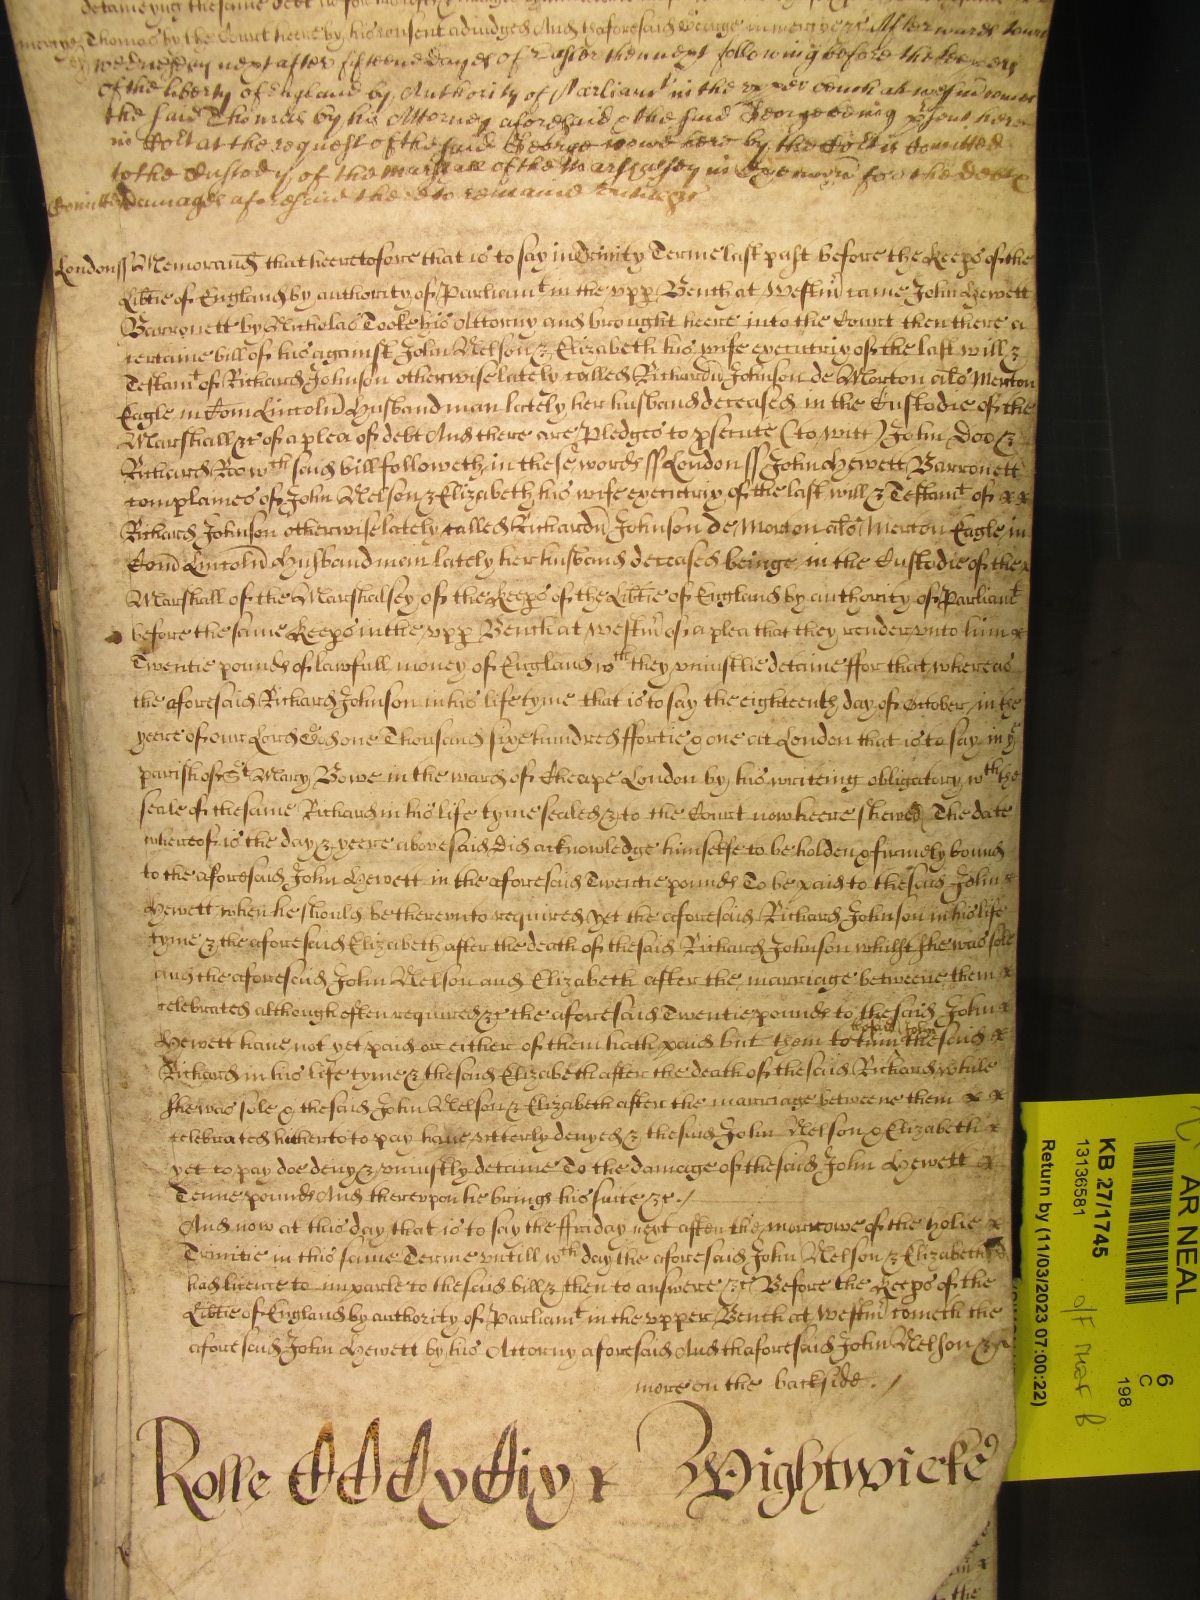 detaineing the same debt
Thomas by the Court heere by his consent adiudged And thaforesaid George in mercy &c Afterwards to witt
wednesday next after fifteene dayes of Easter then next following before the Keepers
of the liberty of England by Authority of Parliamt in the upper bench at westminster
the said Thomas by his Attorney aforesaid & the said George being psent here
in Cort at the request of the said George Rowe here by the Cort is Comitted
to the Custody of the Marshall of the Marshalsey in Execucon for the debt &
Comitted damages aforesaid there to remaine untill &c
London ss Memorand that heeretofore that is to say in Trinity Terme last past before the Keeps of the
Libtie of England by authority of Parliamt in the upp Bench at Westmr came John Hewett
Barronett by Nicholas Tooke his Attorny and brought heere into the Court then there a
certaine bill of his against John Nelson & Elizabeth his wife executrix of the last will &
Testamt of Richard Johnson otherwise lately called Richardu Johnson de Morton als Merton
Eagle in Com Lincoln Husbandman lately her husband deceased in the Custodie of the
Marshall &c of a plea of debt And there are Pledges to psecute (to witt) John Doo &
Richard Roo wth said bill followeth in these words ss London ss John Hewett Barronett
complaines of John Nelson & Elizabeth his wife executrix of the last will & Testamt of x x
Richard Johnson otherwise lately called Richardu Johnson de Morton als Merton Eagle in
Com Lincoln Husbandman lately her husband deceased beinge in the Custodie of the x
Marshall of the Marshalsey of the Keeps of the Libtie of England by authority of Parliamt
before the same Keeps in the upp Bench at Westmr of a plea that they render unto him x
Twentie pounds of lawfull money of England wth they uniustlie detaine ffor that whereas
the aforesaid Richard Johnson in his life tyme that is to say the eighteenth day of October in the
yeere of our Lord God one Thousand sixe hundred ffortie & one at London that is to say in ye
parish of St Mary Bowe in the ward of Cheape London by his writeing obligatory wth the
seale of the same Richard in his life tyme sealed & to the Court now heere shewed The date
whereof is the day & yeere abovesaid did acknowledge himselfe to be holden & firmely bound
to the aforesaid John Hewett in the aforesaid Twentie pounds To be paid to the said John x
Hewett when he should be thereunto required yet the aforesaid Richard Johnson in his life
tyme & the aforesaid Elizabeth after the death of the said Richard Johnson whilst she was sole
and the aforesaid John Nelson and Elizabeth after the marriage betweene them x
celebrated although often required &c the aforesaid Twentie pounds to the said John x
Hewett have not yet paid or either of them hath paid but them to him the said x
the said John
Richard in his life tyme & the said Elizabeth after the death of the said Richard while
she was sole & the said John Nelson & Elizabeth after the marriage betweene them x x
celebrated hitherto to pay have utterly denyed & the said John Nelson & Elizabeth x
yet to pay doe deny & uniustly detaine To the damage of the said John Hewett x
Tenne pounds And thereupon he brings his suite &c /
And now at this day that is to say the ffriday next after the morrowe of the holie x
Trinitie in this same Terme untill wth day the aforesaid John Nelson & Elizabeth
had licence to imparle to the said bill & then to answere &c Before the Keeps of the
Libtie of England by authority of Parliamt in the upper Bench at Westmr cometh the
aforesaid John Hewett by his Attorny aforesaid And thaforesaid John Nelson &
more on the backside. /
Rolle Wightwicke
AR NEAL
KB 27/1745
13136581
Return by (11/03/2023 07:00:22)
6
C
198